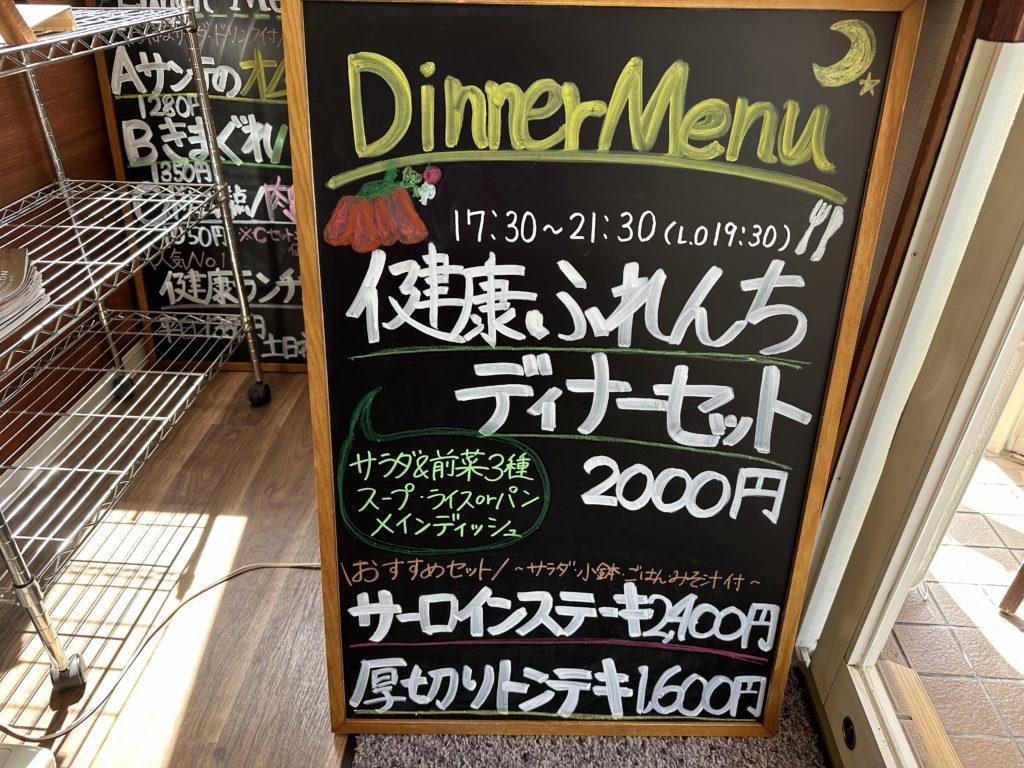 Dinner Menu
17:30～21:30 (L.O 19:30)
健康ふれんち
ディナーセット
2000円
サラダ&前菜3種
スープ・ライスorパン
メインディッシュ
\おすすめセット/ ～サラダ・小鉢・ごはんみそ汁付～
サーロインステーキ2,400円
厚切りトンテキ1,600円
Aサンテの
1280円
Bきまぐれ
1350円
肉
50円 ※Cセット
人気No.1
健康ランチ
土日